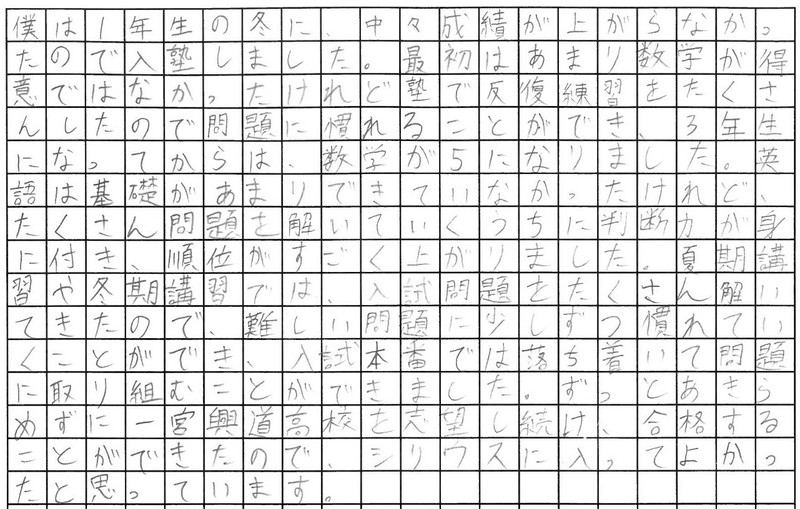 僕は1年生の冬に、中々成績が上がらなかっ
たので入塾しました。最初はあまり数学が得
意ではなかったけれど塾で反復練習をたくさ
んしたので問題に慣れることができ、3年生
になってからは、数学が5になりました。英
語は基礎があまりできていなかったけれど、
たくさん問題を解いていくうちに判断力が身
に付き、順位がすごく上がりました。夏期講
習や冬期講習では、入試問題をたくさん解い
てきたので、難しい問題に少しずつ慣れてい
くことができ、入試本番では落ち着いて問題
に取り組むことができました。ずっとあきら
めずに一宮興道高校を志望し続け、合格する
ことができたので、シリウスに入ってよかっ
たと思っています。